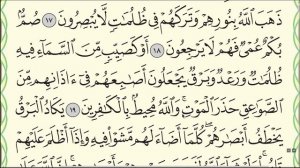 ذَهَبَ ٱللَّهُ بِنُورِهِمْ وَتَرَكَهُمْ فِى ظُلُمَٰتٍ لَّا يُبْصِرُونَ ١٧ صُمٌّۢ
بُكْمٌ عُمْىٌ فَهُمْ لَا يَرْجِعُونَ ١٨ أَوْ كَصَيِّبٍ مِّنَ ٱلسَّمَآءِ فِيهِ
ظُلُمَٰتٌ وَرَعْدٌ وَبَرْقٌ يَجْعَلُونَ أَصَٰبِعَهُمْ فِىٓ ءَاذَانِهِم مِّنَ
ٱلصَّوَٰعِقِ حَذَرَ ٱلْمَوْتِ وَٱللَّهُ مُحِيطٌۢ بِٱلْكَٰفِرِينَ ١٩ يَكَادُ ٱلْبَرْقُ
يَخْطَفُ أَبْصَٰرَهُمْ كُلَّمَآ أَضَآءَ لَهُم مَّشَوْا۟ فِيهِ وَإِذَآ أَظْلَمَ عَلَيْهِمْ